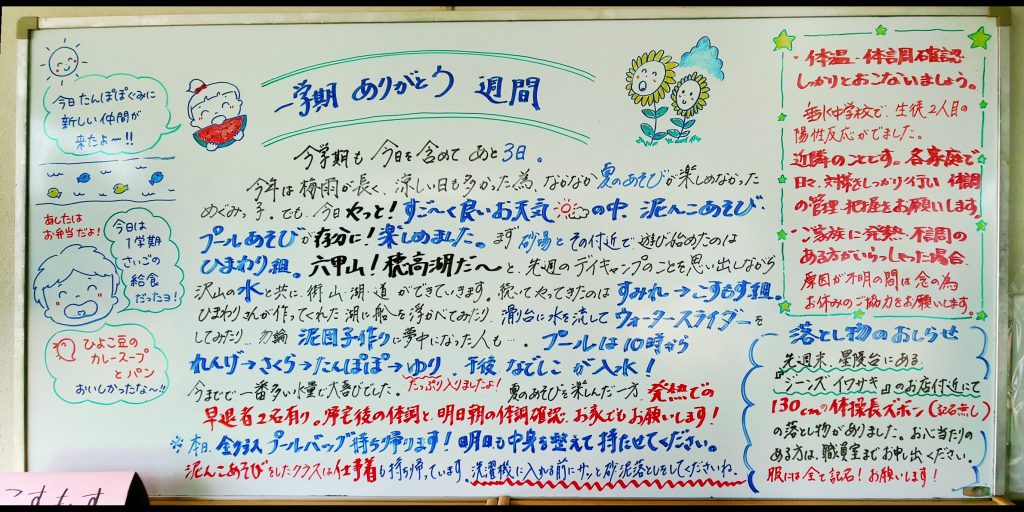 一学期 ありがとう 週間
今日 たんぽぽぐみに
新しい仲間が
来たよ〜!!
あしたは
お弁当だよ!
今日は
1学期
さいごの
給食
だったヨ!
ひよこ豆の
カレースープ
とパン
おいしかったな〜!!
今学期も 今日を含めて あと3日。
今年は梅雨が長く、涼しい日も多かった為、なかなか夏のあそびが楽しめなかった
めぐみっ子。でも、今日やっと!すご〜く良いお天気の中、泥んこあそび
プールあそびが存分に!楽しめました。まず 砂場とその付近で遊び始めたのは
ひまわり組。六甲山!穂高湖だ〜と、先週のデイキャンプのことを思い出しながら
沢山の水と共に、街・山・湖・道ができていきます。続いてやってきたのは すみれ→こすもす組。
ひまわりさんが作ってくれた湖に船を浮かべてみたり、滑り台に水を流してウォータースライダーを
してみたり…勿論 泥団子作りに夢中になった人も…。プールは10時から
れんげ→さくら→たんぽぽ→ゆり、午後 なでしこが入水!
今までで一番多い水量で大喜びでした。たっぷり入りましたよ! 夏のあそびを楽しんだ一方、発熱での
早退者2名有り。帰宅後の体調と、明日朝の体調確認、お家でもお願いします!
※本日、全クラス プールバッグ持ち帰ります!明日も中身を整えて持たせてください。
泥んこあそびをしたクラスは仕事着も持ち帰っています。洗濯機に入れる前にサッと砂泥落としをしてくださいね。
・体温・体調確認
しっかりとおこないましょう。
垂水中学校で、生徒2人目の
陽性反応がでました。
近隣のことです。各家庭で
日々、対策をしっかり行い 体調
の管理・把握をお願いします。
・ご家族に発熱・不調の
ある方がいらっしゃった場合、
原因が不明の間は念の為
お休みのご協力をお願いします。
落とし物のおしらせ
先週末、星陵台にある
『ジーンズ イワサキ』のお店付近にて
130cmの体操長ズボン(記名無し)
の落とし物がありました。お心当たりの
ある方は、職員室までお申し出ください。
服には全て記名!お願いします!
こすもす